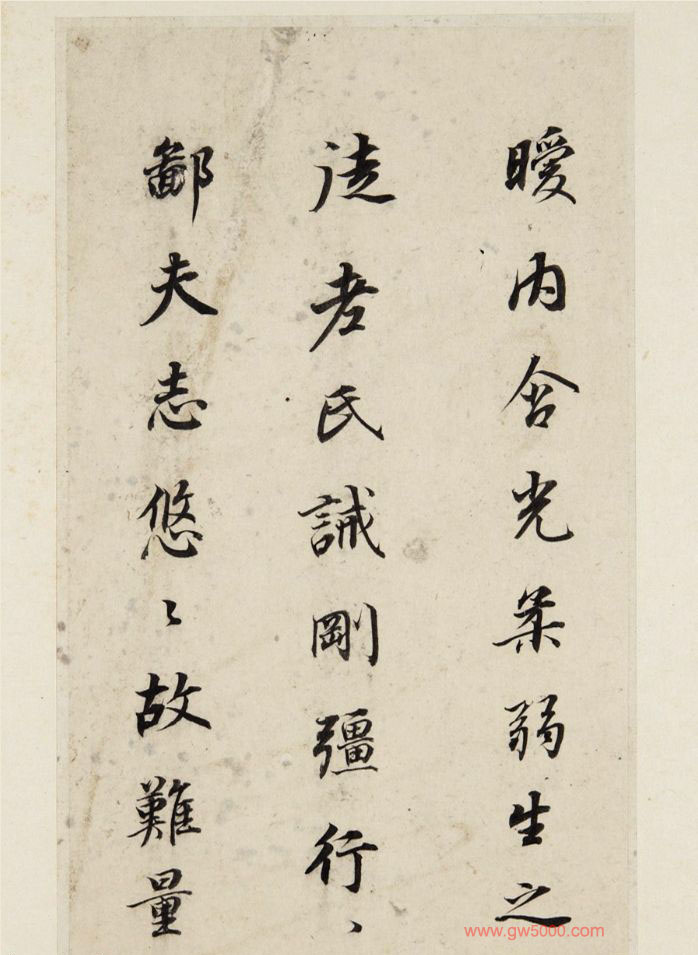 曖内含光柔弱生之
徒老氏誡剛彊行〻
鄙夫志悠〻故難量
www.gw5000.com